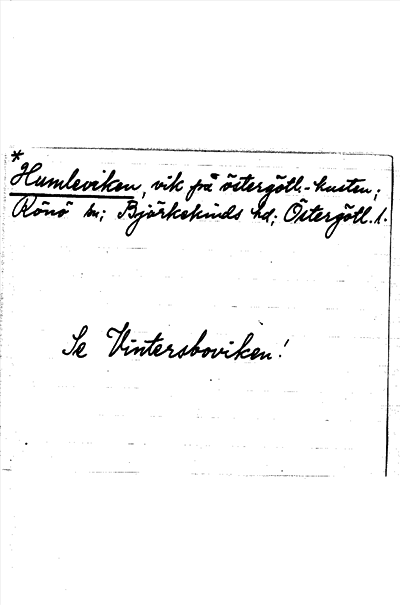 *
Humleviken, vik på östergötl.-kusten;
Rönö sn; Björkekinds hd; Östergötl. l.
Se Vintersboviken!